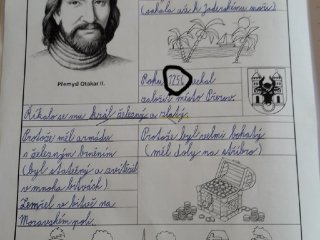 (sahala až k Jaderskému moři)
Přemysl Otakar II.
Roku 1256 nechal
založit město Přerov.
Říkalo se mu král železný a
zlatý.
Protože měl armádu
s železným brněním
(byl statečný a zvítězil
v mnoha bitvách)
Zemřel v bitvě na
Moravském poli.
Protože byl velmi bohatý
(měl doly na stříbro)